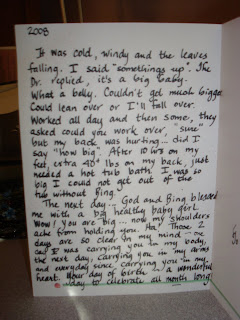 2008
It was cold, windy and the leaves
falling. I said "somethings up". The
Dr. replied, it's a big baby.
What a belly. Couldn't get much bigger
Could lean over or I'll fall over.
Worked all day and then some, they
asked could you work over, "sure"
but my back was hurting... did I
say "how big". After 10 hrs on my
feet, extra 40+ lbs on my back, just
needed a hot tub bath. I was so
big I could not get out of the
tub without
The next day... God and blessed
me with a big healthy baby girl.
Wow! You are big... now my shoulders
ache from holding you. Ha! Those 2
days are so clear in my mind - one
day I was carrying you in my body,
the next day, carrying you in my arms
and everyday since, carrying you in my
heart. Your day of birth - a wonderful
day to celebrate all month long!